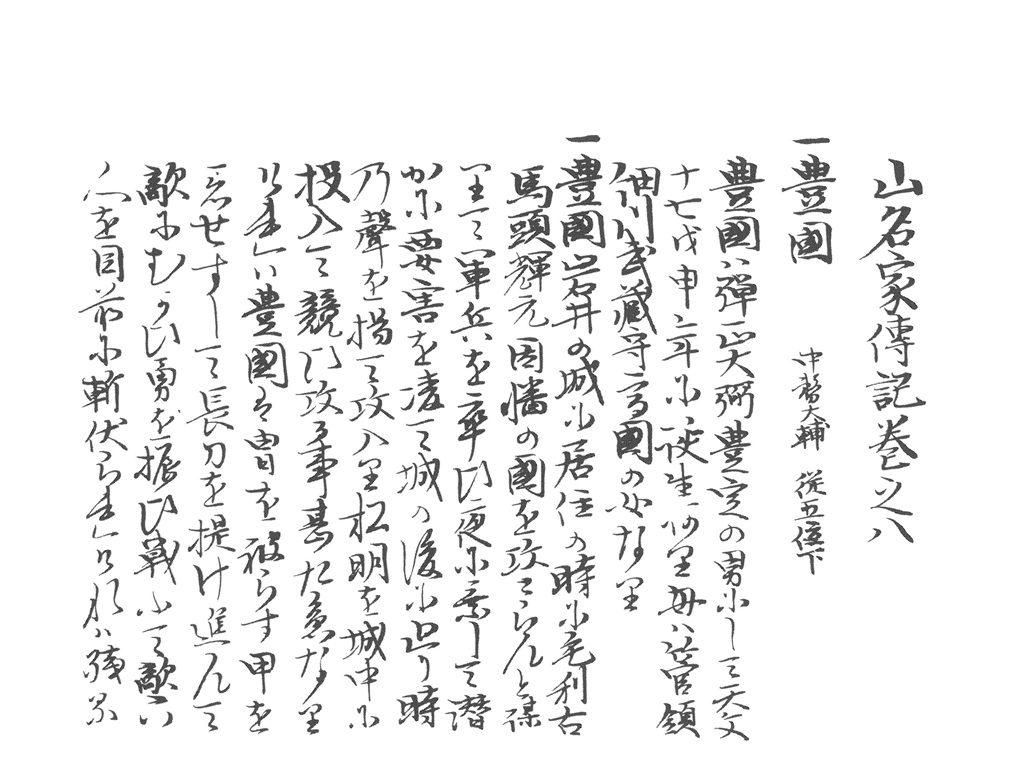 山名家傳記巻之八
一豊國 中務大輔 従五位下
豊國ハ彈正大弼豊定の男にして天文
十七戊申年に誕生ありし母ハ管領
細川武藏守高國の女なり
一豊國岩井の城に居住の時に毛利右
馬頭輝元因幡の國を攻とらんと謀
りて軍兵を率ひ夜に乗して潜
かに要害を凌て城の後に廻り時
乃聲を揚て攻入り松明を城中に
投入て競ひ攻る事甚た急なり
けれハ豊國ハ冑を被らす甲を
著せすして長刀を提け進んて
敵にむかひ勇を振ひ戦ふて敵一
人を目前に斬伏られけれハ残黨